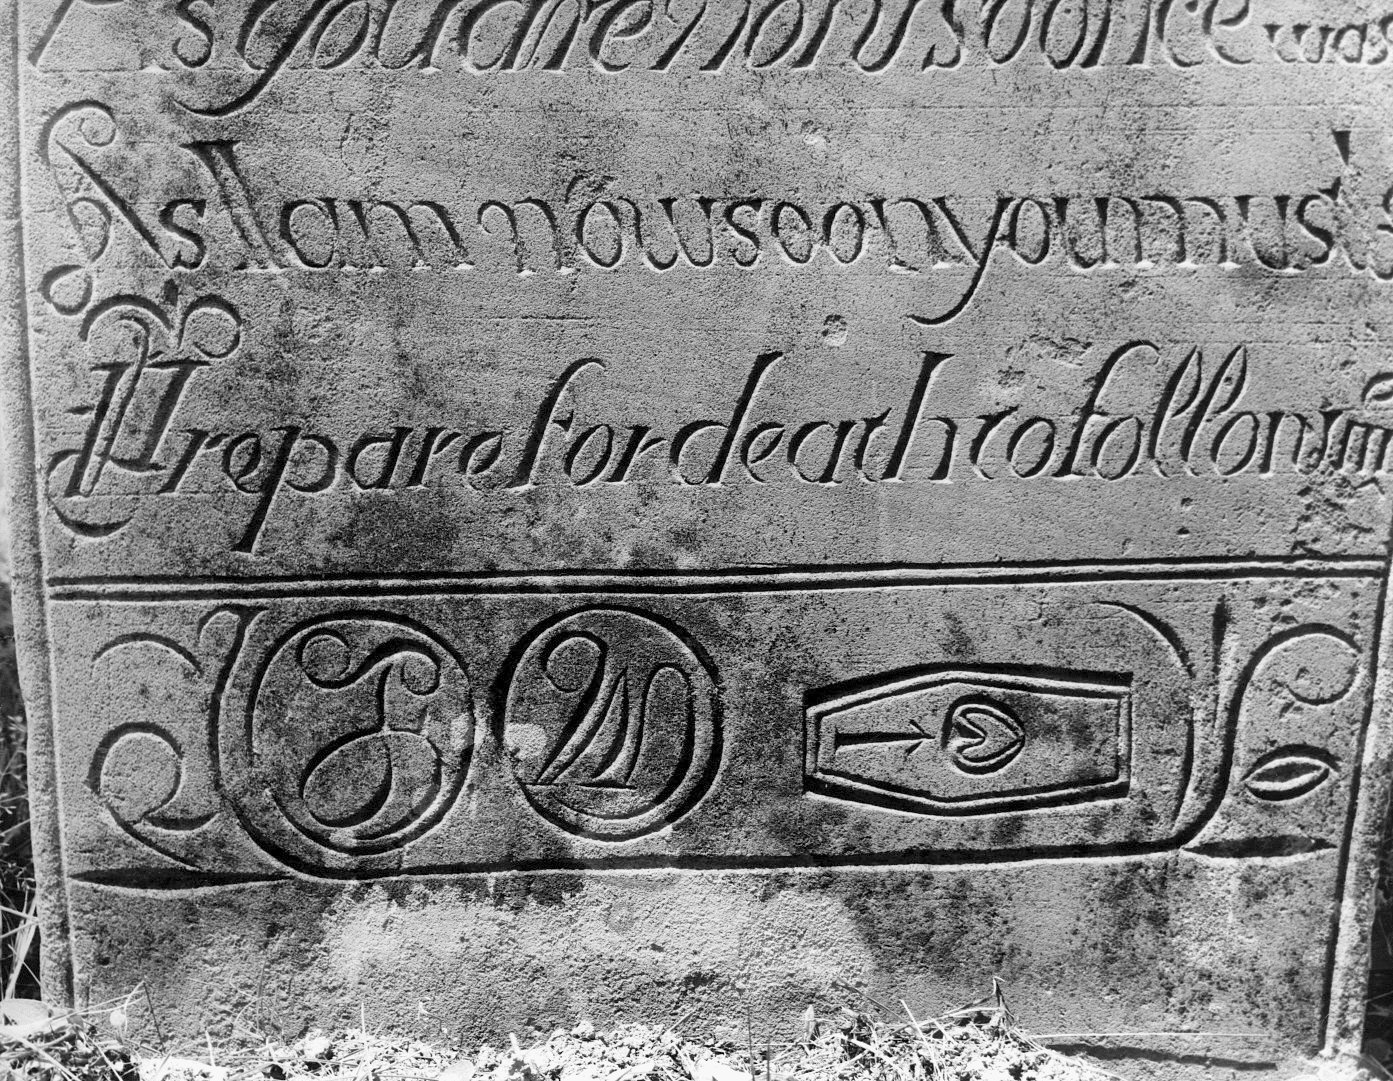 As you are now so once was
As I am now so on you must
Prepare for death to follow